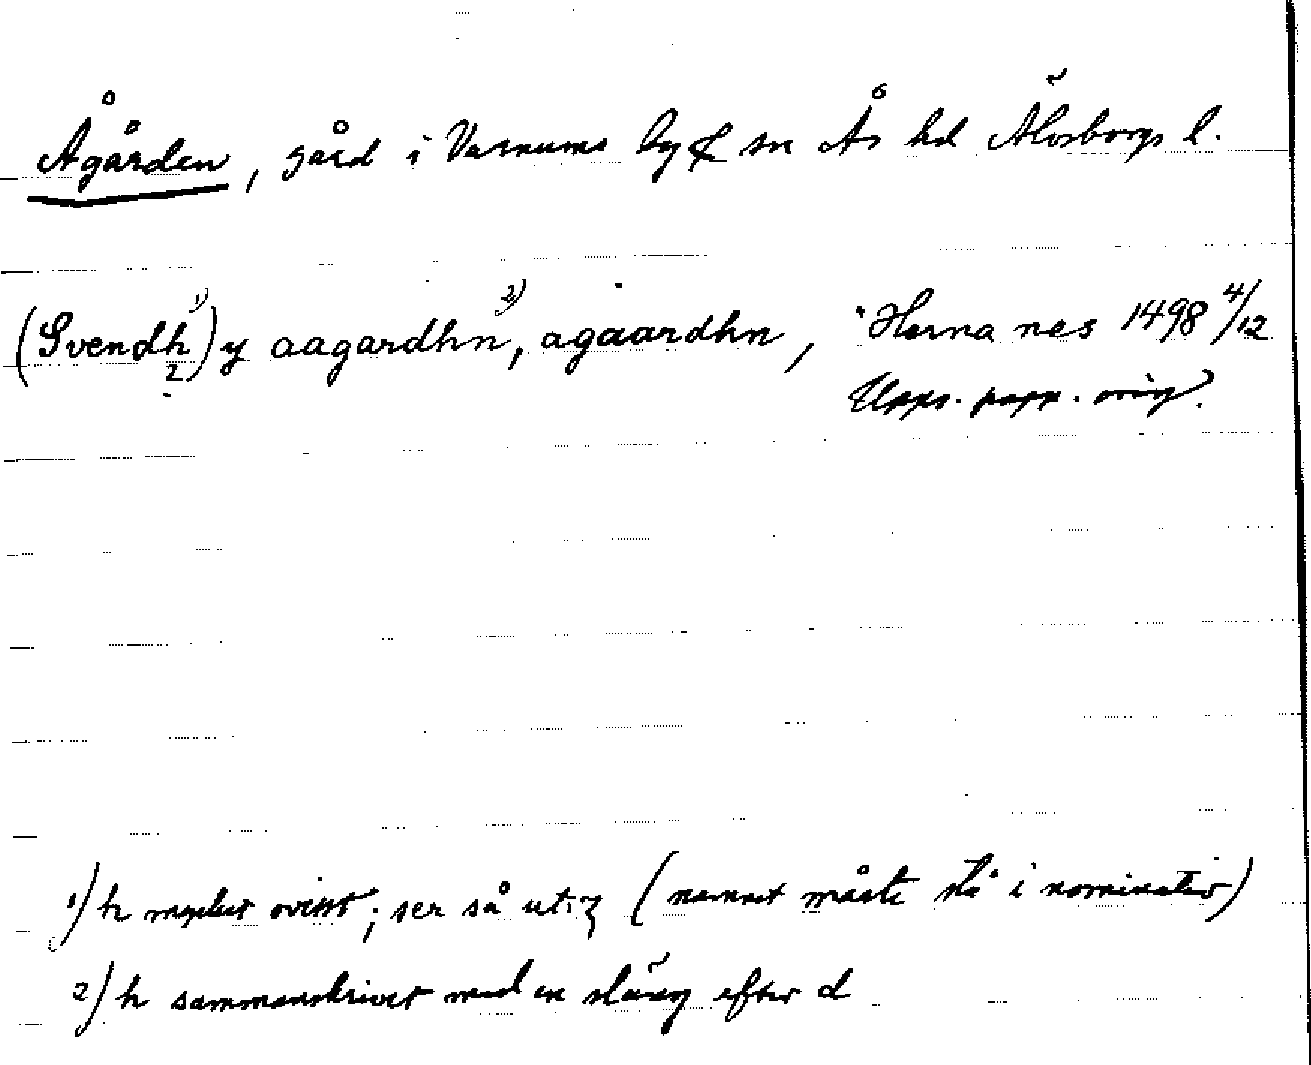 Ågården, gård i Varnums by & sn Ås hd Älvsborgs l.
(Svendh 1)) y aagardhn 2), agaardhn, Horna nes 1498 4/12
z
Upps. papp. orig.
1) h mycket ovisst; ser så ut: z (namnet måste stå i nominativ)
2) h sammanskrivet med en släng efter d